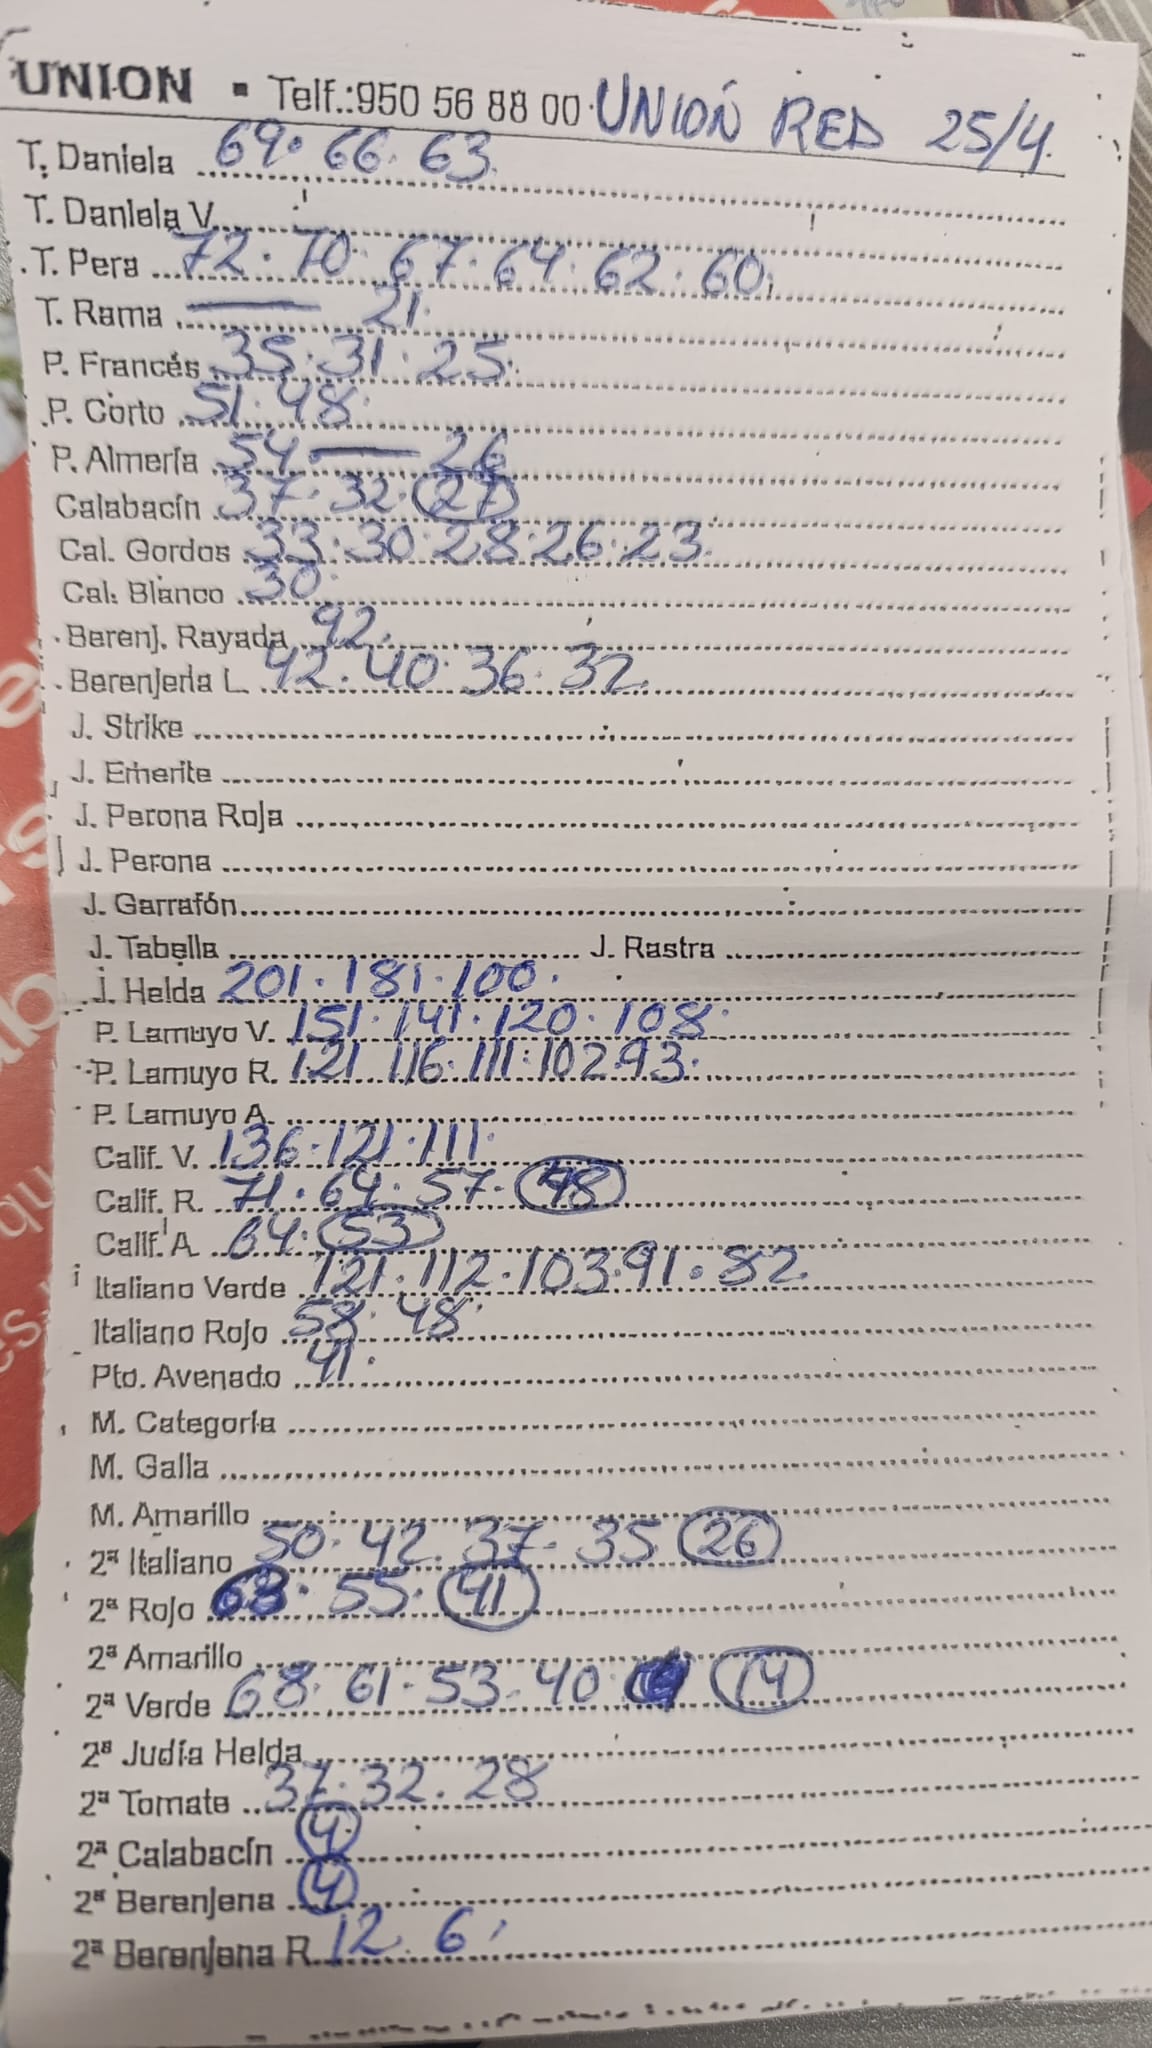 UNION ▪ Telf.:950 56 88 00 UNIÓN RED 25/4.
T. Daniela 69. 66. 63.
T. Daniela V.
T. Pera 72. 70. 67. 64. 62. 60.
T. Rama — 21.
P. Francés 35. 31. 25.
P. Corto 51. 48.
P. Almería 54. — 26
Calabacín 37. 32. 27
Cal. Gordos 33. 30. 28. 26. 23.
Cal. Blanco 30.
Berenj. Rayada 92.
Berenjena L. 42. 40. 36. 32.
J. Strike
J. Emerite
J. Perona Roja
J. Perona
J. Garrafón
J. Tabella J. Rastra
J. Helda 201. 181. 100.
P. Lamuyo V. 151. 141. 120. 108.
P. Lamuyo R. 121 116. 111. 102. 93.
P. Lamuyo A.
Calif. V. 136. 121. 111.
Calif. R. 71. 64. 57. 48
Calif. A. 64. 53
Italiano Verde 121. 112. 103. 91. 82.
Italiano Rojo 58. 48.
Pto. Avenado 41.
M. Categoría
M. Galla
M. Amarillo
2ª Italiano 50. 42. 37. 35 26
2ª Rojo 68. 55. 41
2ª Amarillo
2ª Verde 68. 61. 53. 40. 14
2ª Judía Helda
2ª Tomate 37. 32. 28
2ª Calabacín 4
2ª Berenjena 4
2ª Berenjena R. 12. 6.